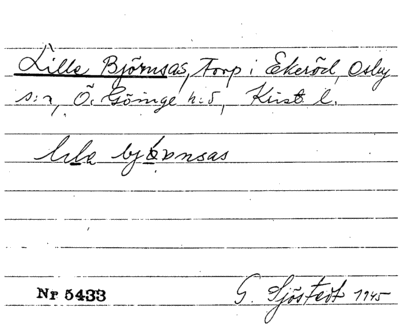 Lilla Björnsas, torp i Ekeröd, Osby
s:n, Ö. Göinge h:d, Krist l.
bjönsas
Nr 5433 G. Sjöstedt 1945